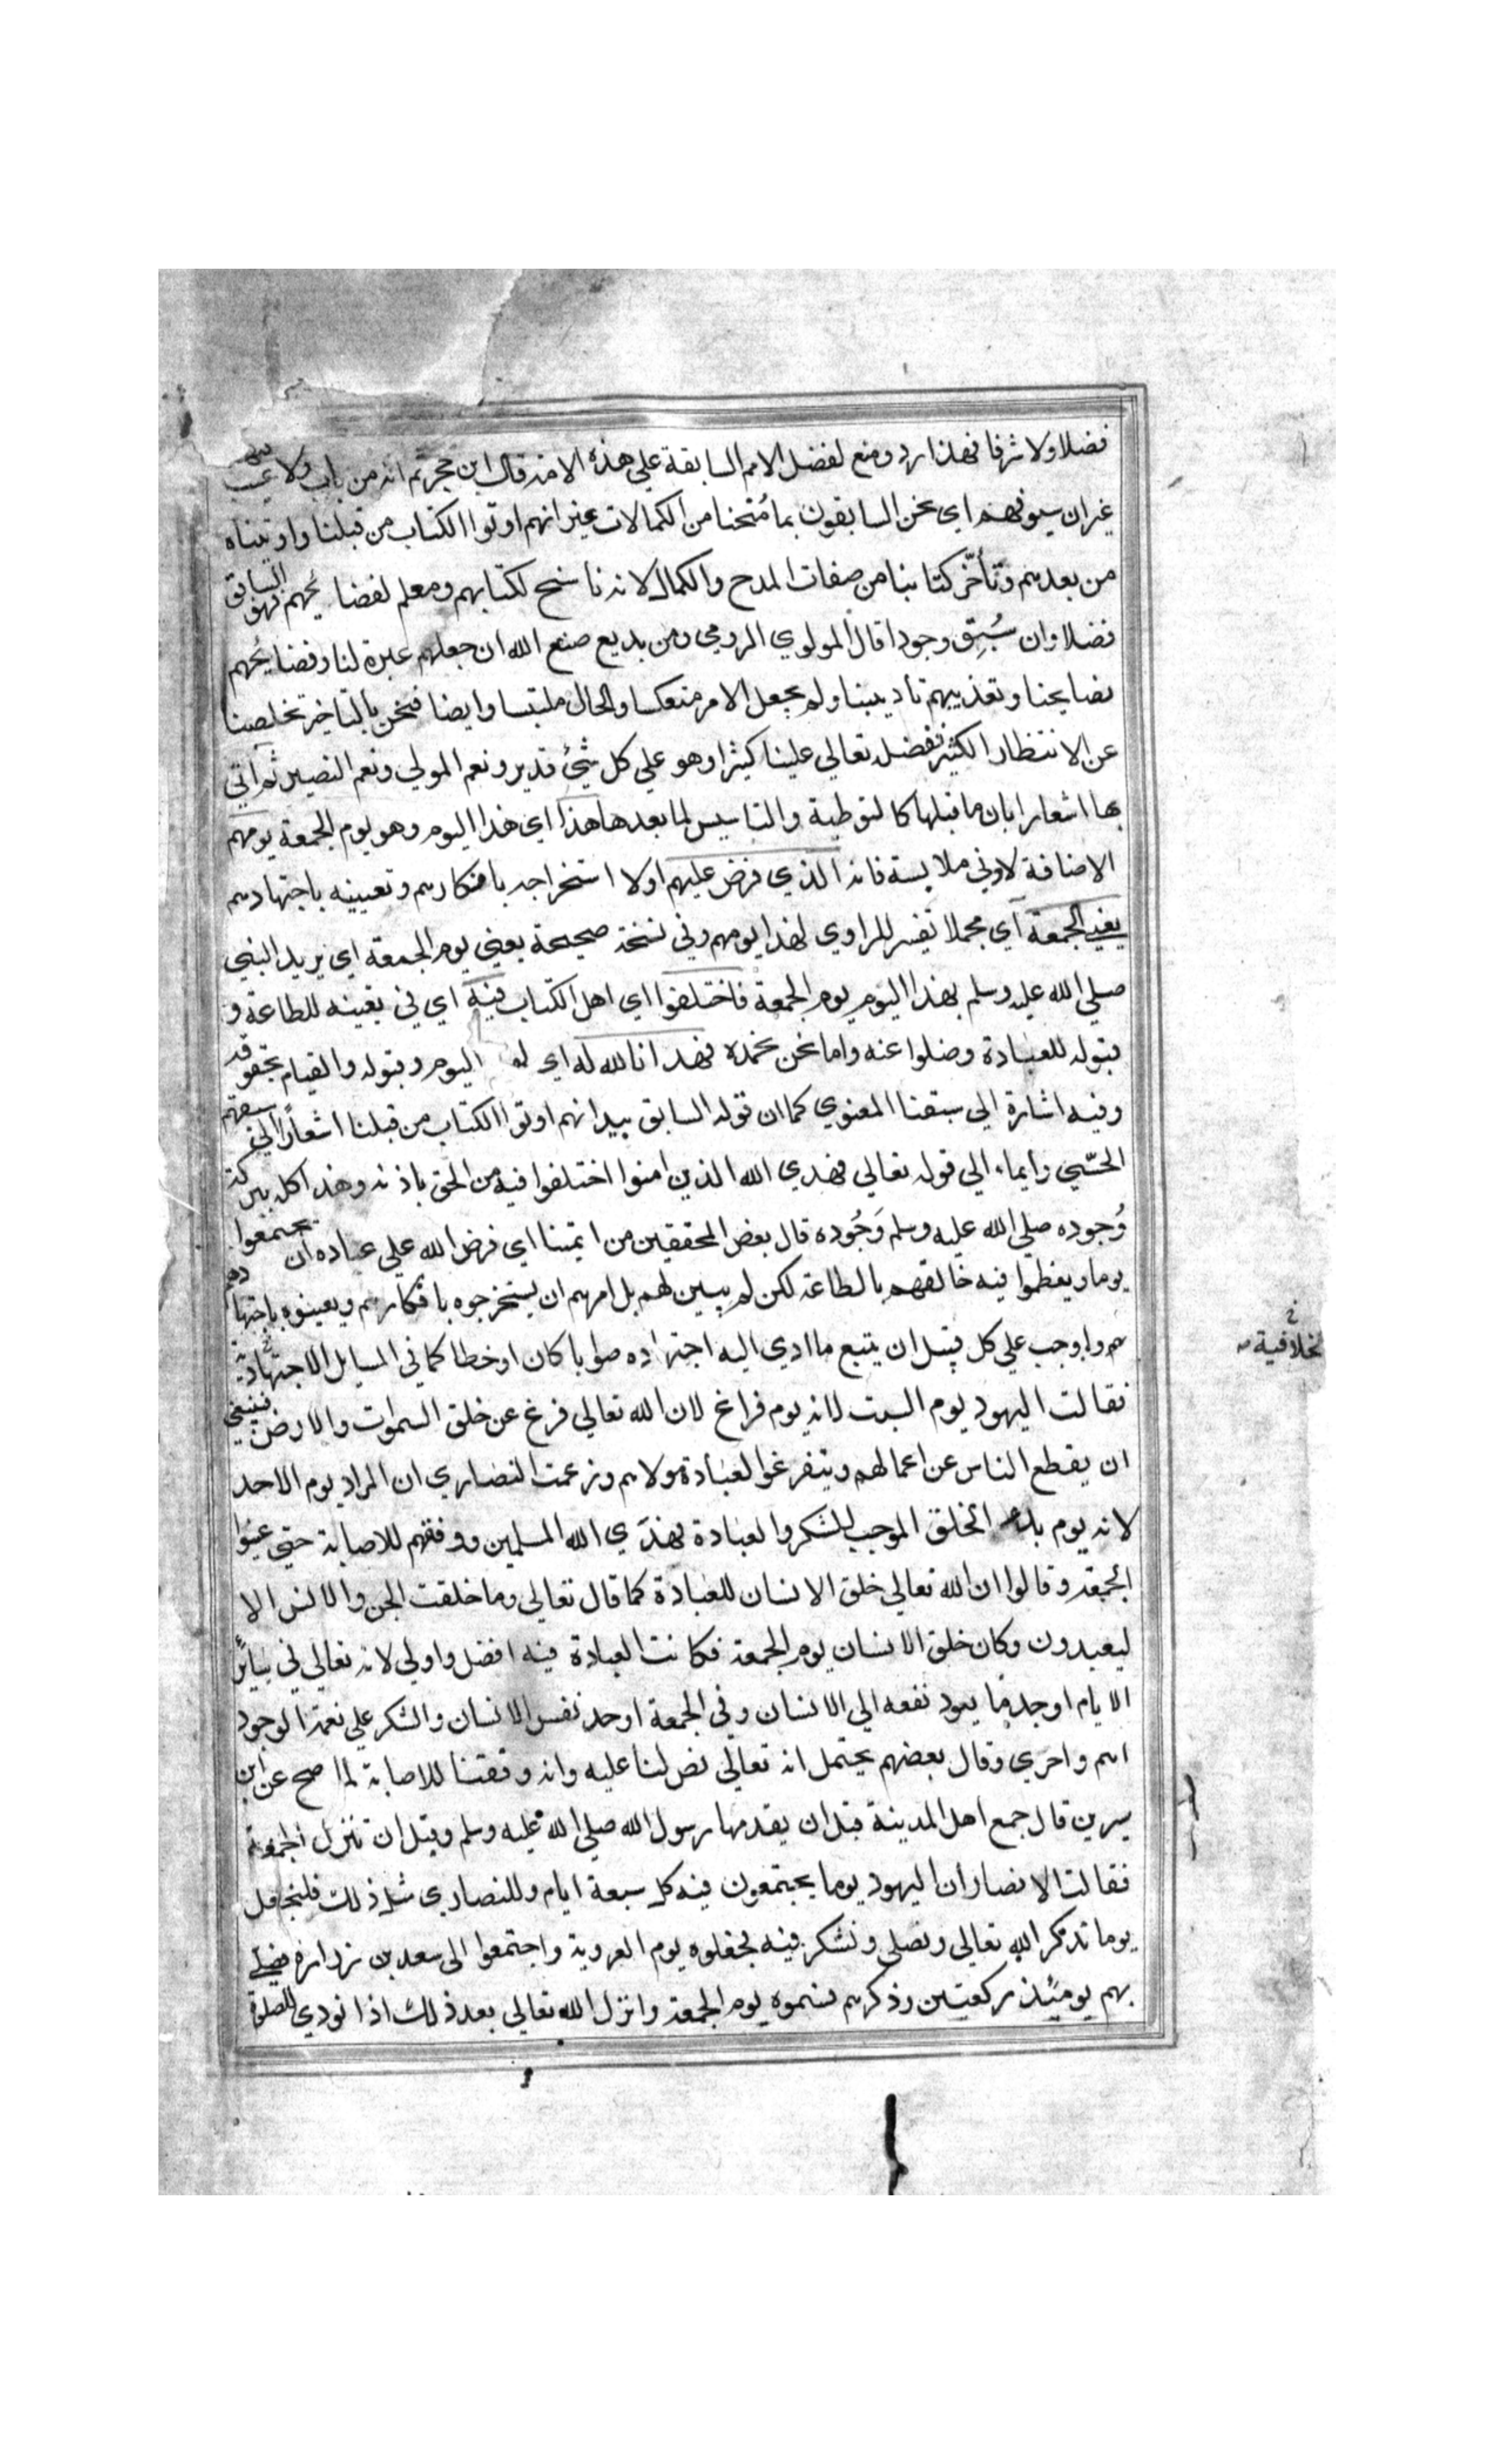 فضلا ولا شرفا فهذا رد ومنع لفضل الامم السابقة علي هذه الامة قال ابن حجر ثم انه من باب ولا عيب
غير ان سيوفهم اي نحن السابقون بما مُنحنا من الكمالات غير انهم اوتوا الكتاب من قبلنا واوتيناه
من بعدهم وتأخّر كتابنا من صفات المدح والكمال لانه ناسخ لكتابهم ومعلم لفضايحهم فهو السابق
فضلا وان سُبِق وجودا قال المولوي الرومي ومن بديع صنع الله ان جعلهم عبرة لنا وفضايحهم
نصايحنا وتعذيبهم تاديبنا ولم يجعل الامر منعكسا والحال ملتبسا وايضا فنحن بالتاخير تخلصنا
عن الانتظار الكثير ففضله تعالي علينا كثيرا وهو علي كل شيء قدير ونعم المولي ونعم النصير ثم اتي
بها اشعارا بان ما قبلها كالتوطية والتاسيس لما بعدها هذا اي هذا اليوم وهو يوم الجمعة يومهم
الاضافة لادني ملابسة فانه الذي فرض عليهم اولا استخراجه بافكارهم وتعيينه باجتهادهم
يعني الجمعة اي مجملا تفسير للراوي لهذا يومهم وفي نسخة صحيحة يعني يوم الجمعة اي يريد النبي
صلي الله عليه وسلم بهذا اليوم يوم الجمعة فاختلفوا اي اهل الكتاب فيه اي في تعيينه للطاعة و
قبوله للعبادة وضلوا عنه واما نحن بحمده فهدانا الله له اي اليوم وقبوله والقيام بحقوقه
وفيه اشارة الي سبقنا المعنوي كما ان قوله السابق بيد انهم اوتوا الكتاب من قبلنا اشعارًا الي سبقهم
الحسّي وايماء الي قوله تعالي فهدي الله الذين امنوا اختلفوا فيه من الحق باذنه وهذا كله ببركة
وُجوده صلي الله عليه وسلم وَجُوده قال بعض المحققين من ايمتنا اي فرض الله علي عباده ان يجتمعوا
يوما ويعظموا فيه خالقهم بالطاعة لكن لم يبين لهم بل امرهم ان يستخرجوه بافكارهم ويعينوه باجتهاد
هم واوجب علي كل قبيل ان يتبع ما ادي اليه اجتهاده صوابا كان او خطا كما في المسايل الاجتهادية
خلافية
فقالت اليهود يوم السبت لانه يوم فراغ لان الله تعالي فرغ عن خلق السموات والارض فينبغي
ان يقطع الناس عن اعمالهم ويتفرغوا لعبادة مولاهم وزعمت النصاري ان المراد يوم الاحد
لانه يوم بدء الخلق الموجب للشكر والعبادة فهدَي الله المسلمين ووفقهم للاصابة حتي عينوا
الجمعة وقالوا ان الله تعالي خلق الانسان للعبادة كما قال تعالي وما خلقت الجن والانس الا
ليعبدون وكان خلق الانسان يوم الجمعة فكانت العبادة فيه افضل واولي لانه تعالي في سائر
الايام اوجد ما يعود نفعه الي الانسان وفي الجمعة اوجد نفس الانسان والشكر علي نعمة الوجود
اهم واحري وقال بعضهم يحتمل انه تعالي نص لنا عليه وانه وفقنا للاصابة لما صح عن ابن
سيرين قال جمع اهل المدينة قبل ان يقدمها رسول الله صلي الله عليه وسلم وقبل ان تنزل الجمعة
فقالت الانصار ان اليهود يوما يجتمعون فيه كل سبعة ايام وللنصاري مثل ذلك فلنجعل
يوما نذكر الله تعالي ونصلي ونشكر فيه فجعلوه يوم العروبة واجتمعوا الي سعد بن زرارة فصلي
بهم يومئذ ركعتين وذكرهم فسموه يوم الجمعة وانزل الله تعالي بعد ذلك اذا نودي للصلوة